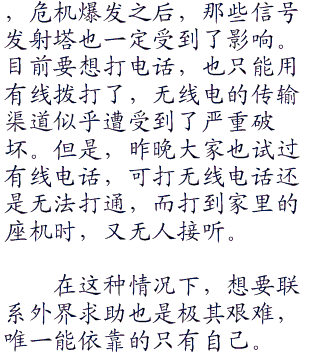 ，危机爆发之后，那些信号
发射塔也一定受到了影响。
目前要想打电话，也只能用
有线拨打了，无线电的传输
渠道似乎遭受到了严重破
坏。但是，昨晚大家也试过
有线电话，可打无线电话还
是无法打通，而打到家里的
座机时，又无人接听。
在这种情况下，想要联
系外界求助也是极其艰难，
唯一能依靠的只有自己。